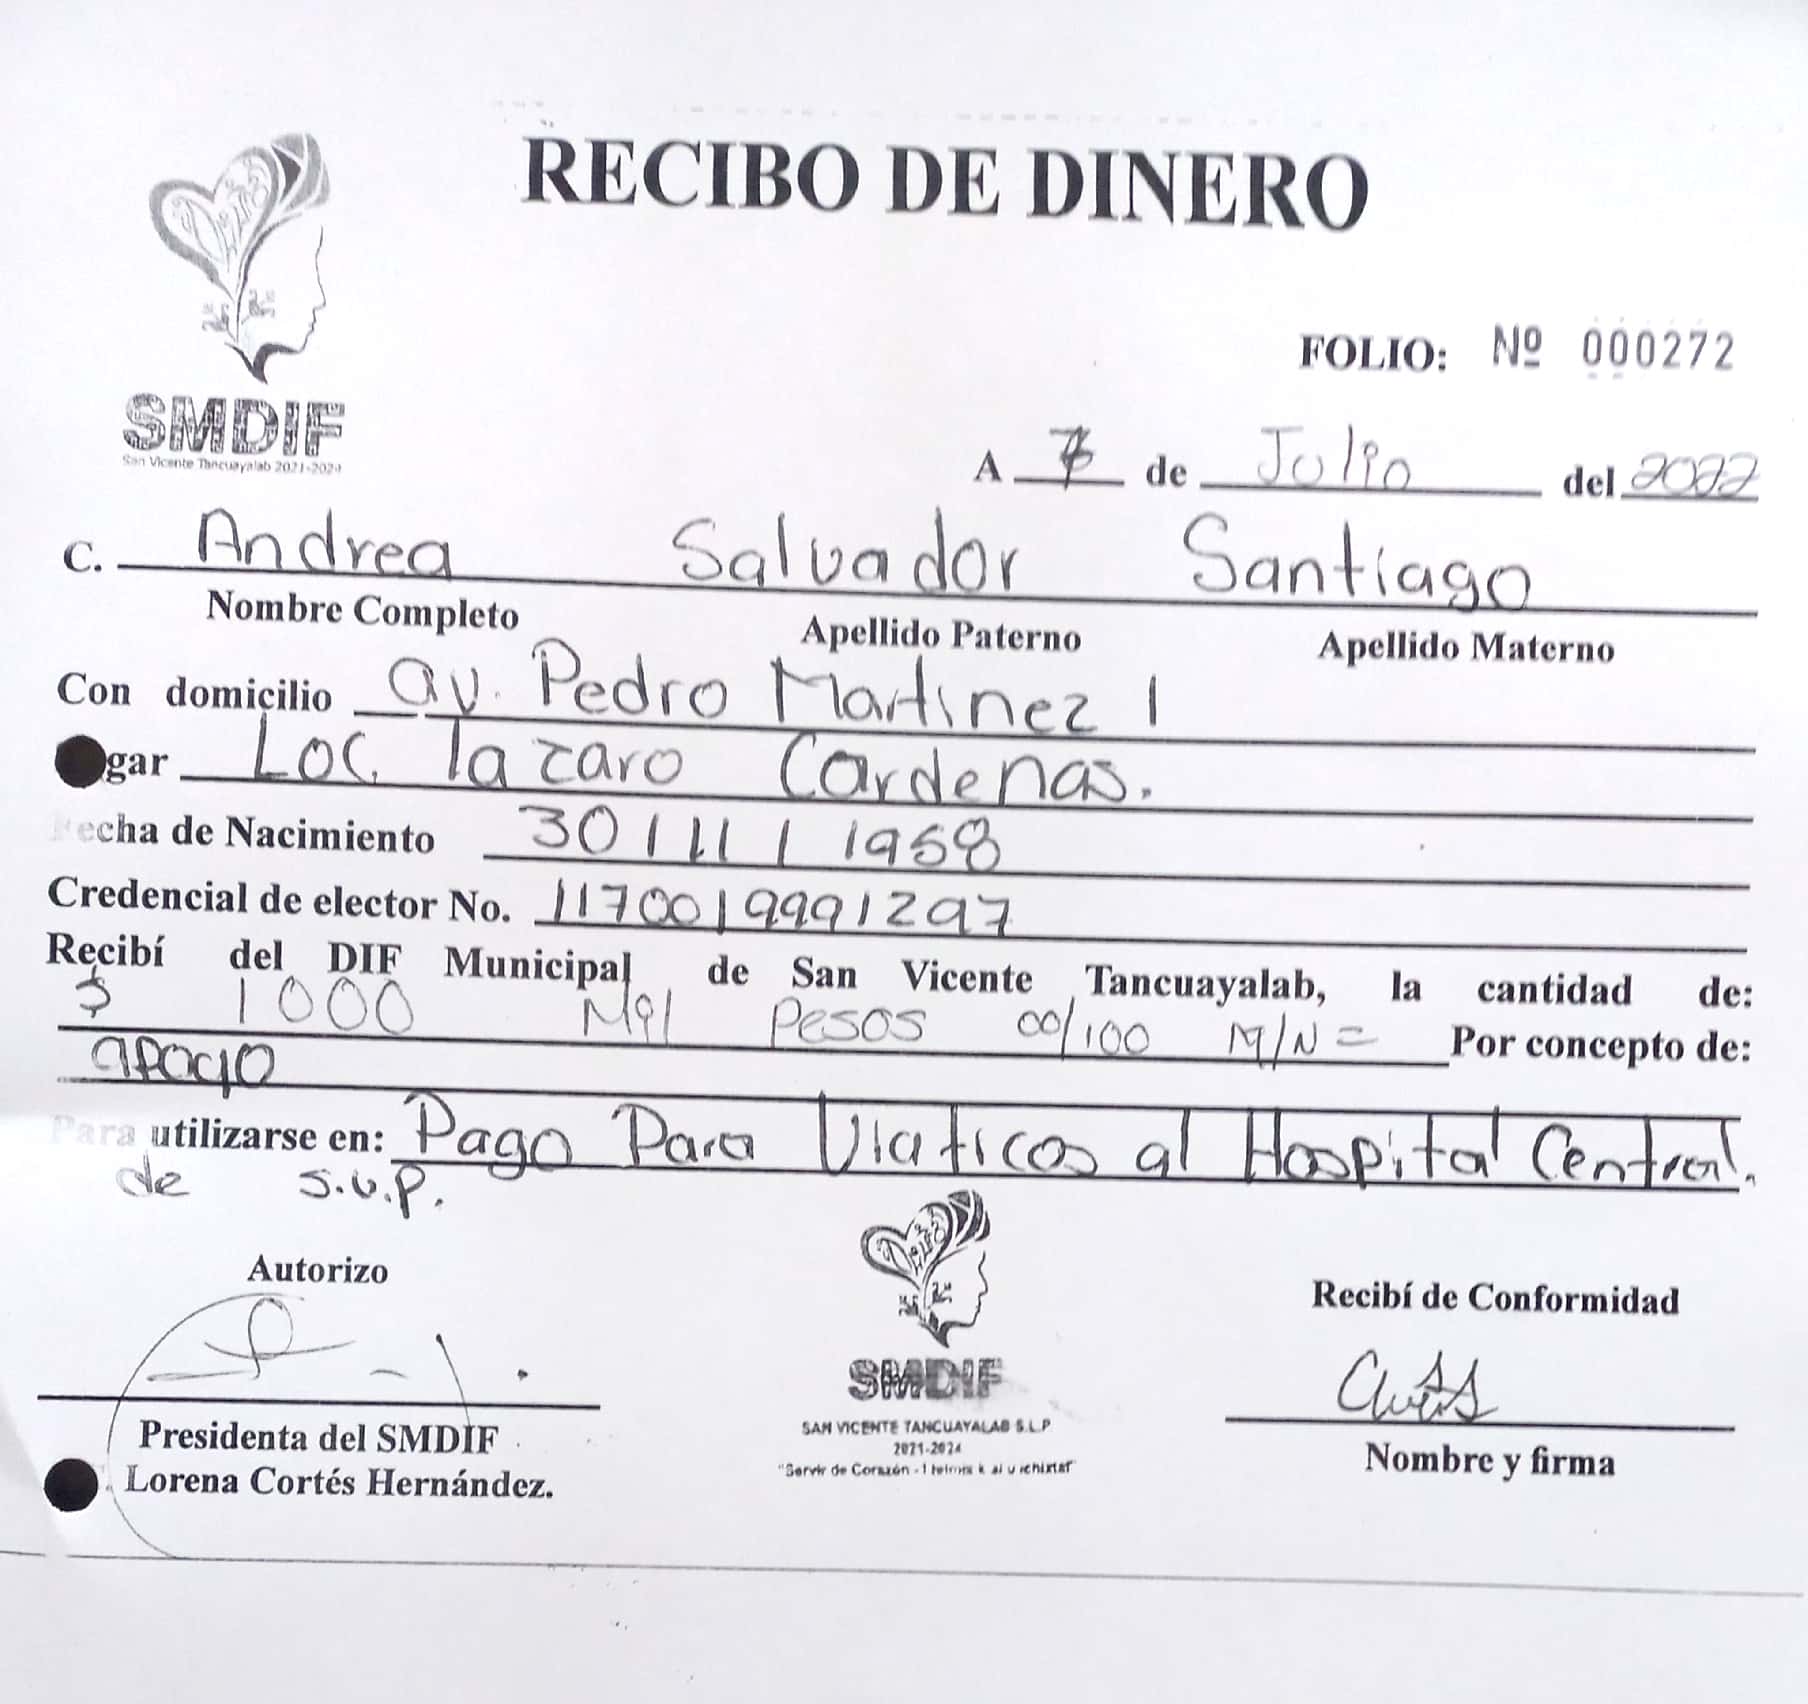 RECIBO DE DINERO
SMDIF
San Vicente Tancuayalab 2021-2024
FOLIO: Nº 000272
A 7 de Julio del 2022
C. Andrea Salvador Santiago
Nombre Completo Apellido Paterno Apellido Materno
Con domicilio av. Pedro Martinez 1
gar Loc. lazaro Cardenas.
Fecha de Nacimiento 30/11/1958
Credencial de elector No. 1170019991297
Recibí del DIF Municipal de San Vicente Tancuayalab, la cantidad de:
$ 1000 Mil Pesos 00/100 M/N = Por concepto de:
apoyo
Para utilizarse en: Pago Para Viaticos al Hospital Central.
de S.L.P.
Autorizo
Recibí de Conformidad
SMDIF
SAN VICENTE TANCUAYALAB S.L.P
2021-2024
"Servir de Corazón -
Presidenta del SMDIF
Lorena Cortés Hernández.
Nombre y firma